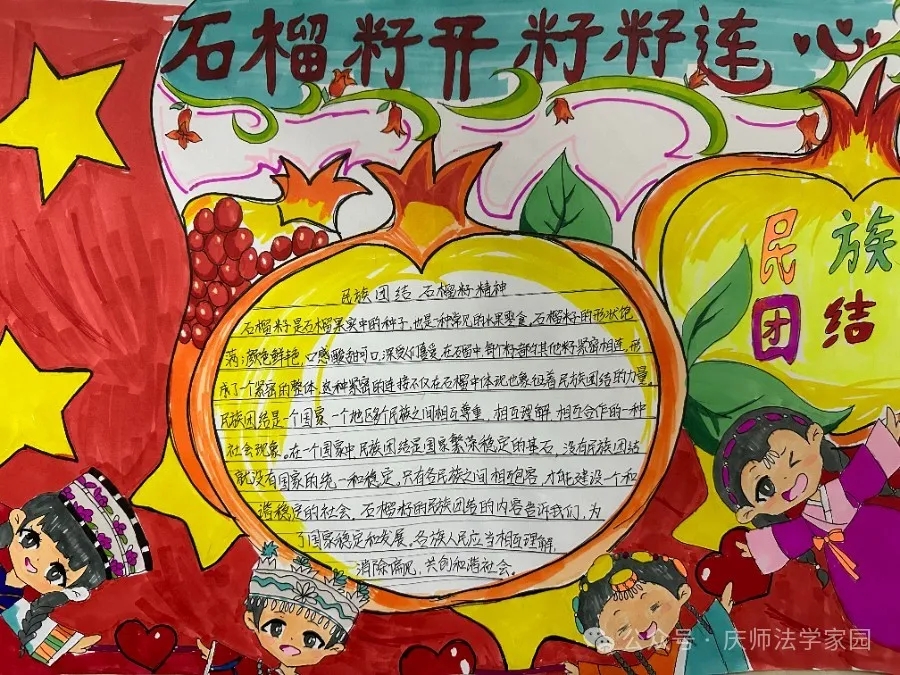 石榴籽开籽籽连心
民族
团结
民族团结 石榴籽精神
石榴籽是石榴果实中的种子,也是一种常见的水果零食,石榴籽的形状饱
满,颜色鲜艳,口感酸甜可口,深受人们喜爱,在石榴中每个籽都与其他籽紧密相连,形
成了一个紧密的整体,这种紧密的连接不仅在石榴中体现也象征着民族团结的力量。
民族团结是一个国家一个地区各个民族之间相互尊重,相互理解,相互合作的一种
社会现象。在一个国家中民族团结是国家繁荣稳定的基石,没有民族团结
就没有国家的统一和稳定,只有各民族之间相互包容,才能建设一个和
谐稳定的社会。石榴籽的民族团结的内容告诉我们,为
了国家稳定和发展,各族人民应当相互理解,
消除隔阂,共创和谐社会。
公众号·庆师法学家园